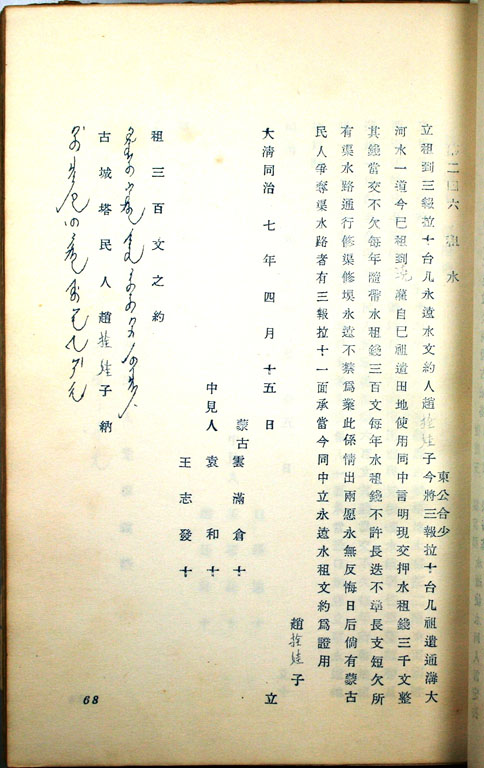 二四六 租水
東公合少
立租到三報拉十台几永遠水文約人趙拴娃子今將三報拉十台几祖遺通溝大
河水一道今巳租到 灌自巳祖遺田地使用同中言明現交押水租錢三千文整
其錢當交不欠每年隨帶水租錢三百文每年水租錢不許長迭不準長支短欠所
有渠水路通行修渠修垻永遠不禁爲業此係情出兩愿永無反悔日后倘有蒙古
民人爭奪渠水路者有三報拉十一面承當今同中立永遠水租文約爲證用
趙拴娃子
大清同治七年四月十五日 立
蒙古雲滿倉十
中見人 袁和十
王志發十
租三百文之約
古城塔民人趙拴娃子納
68